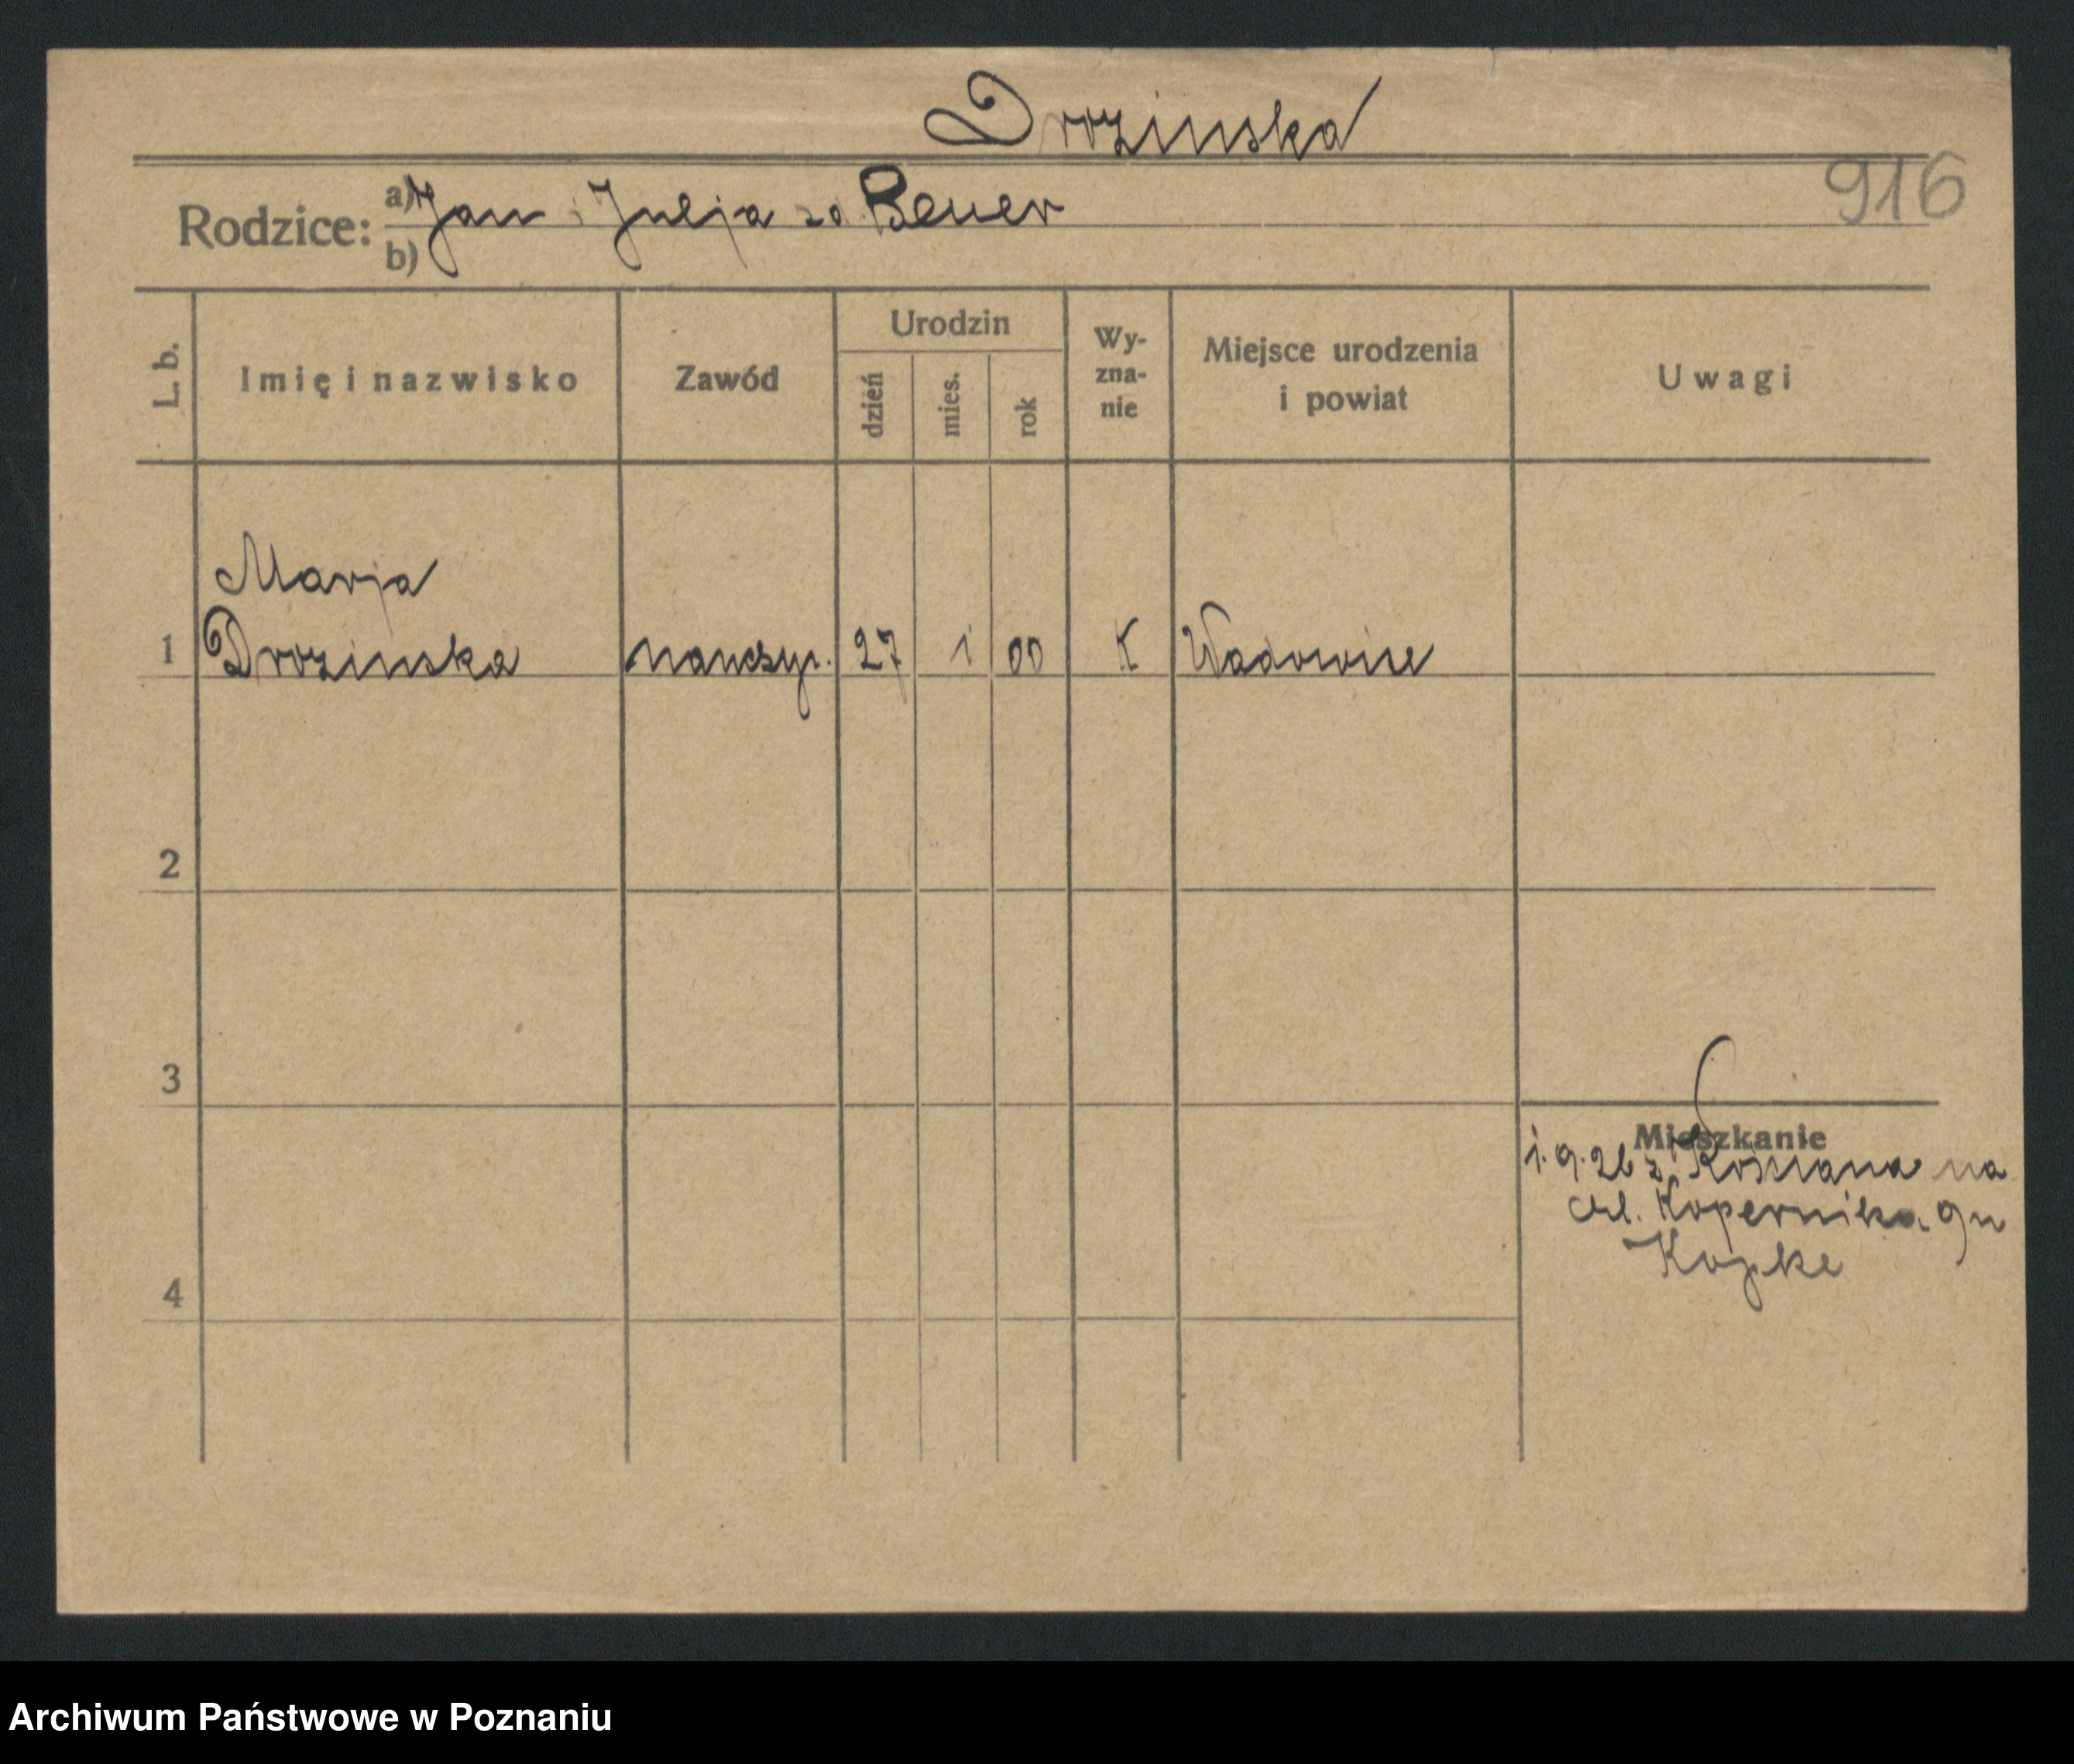 Drozinska
916
Rodzice: a) Jan i Julja zd. Beuer
b)
L. b.
Imię i nazwisko
Zawód
Urodzin
dzień
mies.
rok
Wy-
zna-
nie
Miejsce urodzenia
i powiat
Uwagi
Marja
1 Drozinska nauczyc. 27 1 00 K Wadowice
2
3
Mieszkanie
1.9.26 z Kościana na
ul. Kopernika 9 u
Kopke
4
Archiwum Państwowe w Poznaniu